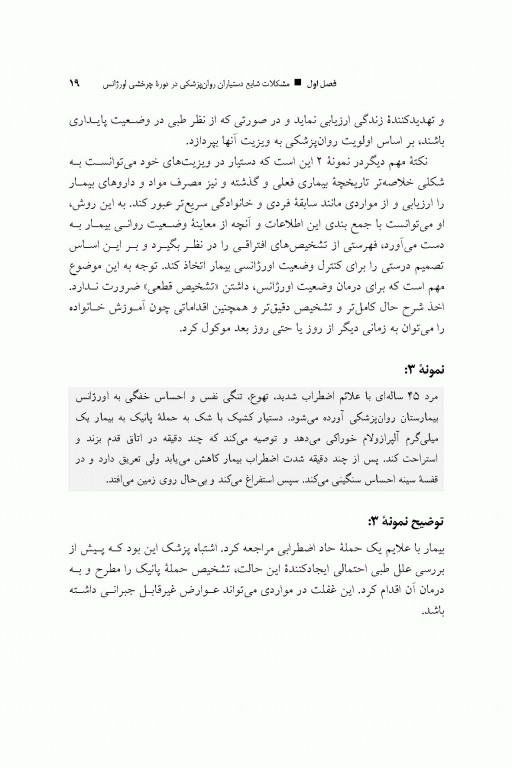 فصل اول ■ مشکلات شایع دستیاران روان‌پزشکی در دورهٔ چرخشی اورژانس ۱۹
و تهدیدکنندهٔ زندگی ارزیابی نماید و در صورتی که از نظر طبی در وضـعیت پایـداری
باشند، بر اساس اولویت روان‌پزشکی به ویزیت آنها بپردازد.
نکتهٔ مهم دیگردر نمونهٔ ۲ این است که دستیار در ویزیت‌های خود می‌توانسـت بـه
شکلی خلاصه‌تر تاریخچهٔ بیماری فعلی و گذشته و نیز مصرف مواد و داروهای بیمـار
را ارزیابی و از مواردی مانند سابقهٔ فردی و خانوادگی سریع‌تر عبور کند. به این روش،
او می‌توانست با جمع بندی این اطلاعات و آنچه از معاینهٔ وضـعیت روانـی بیمـار بـه
دست می‌آورد، فهرستی از تشخیص‌های افتراقـی را در نظـر بگیـرد و بـر ایـن اسـاس
تصمیم درستی را برای کنترل وضعیت اورژانسی بیمار اتخاذ کند. توجه به این موضوع
مهم است که برای درمان وضعیت اورژانس، داشتن «تشخیص قطعی» ضرورت نـدارد.
اخذ شرح حال کامل‌تر و تشخیص دقیق‌تر و همچنین اقداماتی چون آمـوزش خـانواده
را می‌توان به زمانی دیگر از روز یا حتی روز بعد موکول کرد.
نمونهٔ ۳:
مرد ۴۵ ساله‌ای با علائم اضطراب شدید، تهوع، تنگی نفس و احساس خفگی به اورژانس
بیمارستان روان‌پزشکی آورده می‌شود. دستیار کشیک با شک به حملهٔ پانیک به بیمار یک
میلی‌گرم آلپرازولام خوراکی می‌دهد و توصیه می‌کند که چند دقیقه در اتاق قدم بزند و
استراحت کند. پس از چند دقیقه شدت اضطراب بیمار کاهش می‌یابد ولی تعریق دارد و در
قفسهٔ سینه احساس سنگینی می‌کند. سپس استفراغ می‌کند و بی‌حال روی زمین می‌افتد.
توضیح نمونهٔ ۳:
بیمار با علایم یک حملهٔ حاد اضطرابی مراجعه کرد. اشتباه پزشک این بود کـه پـیش از
بررسی علل طبی احتمالی ایجادکنندهٔ این حالت، تشخیص حملهٔ پانیک را مطرح و بـه
درمان آن اقدام کرد. این غفلت در مواردی می‌تواند عـوارض غیرقابـل جبرانـی داشـته
باشد.